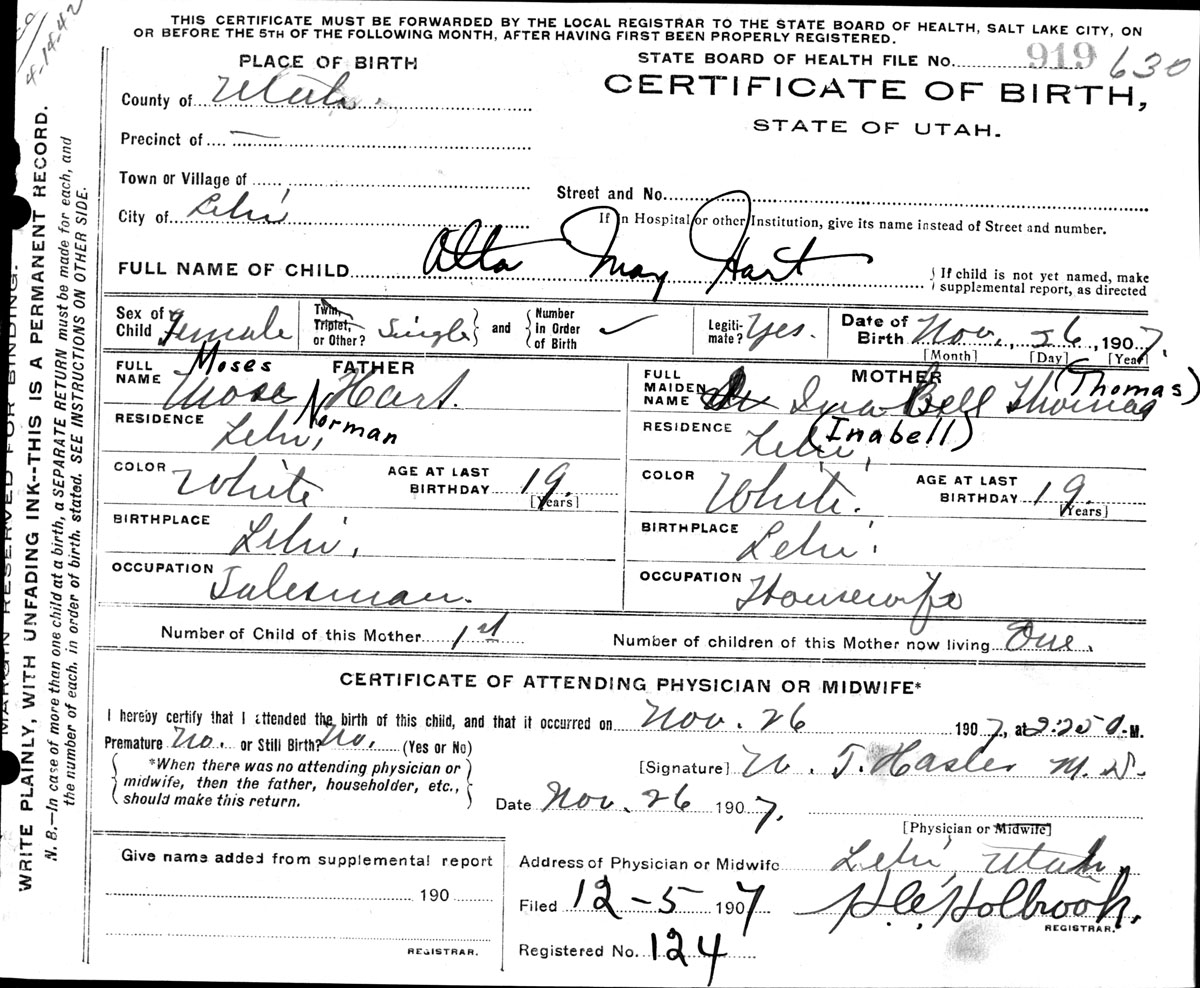 4-14-42
THIS CERTIFICATE MUST BE FORWARDED BY THE LOCAL REGISTRAR TO THE STATE BOARD OF HEALTH, SALT LAKE CITY, ON
OR BEFORE THE 5TH OF THE FOLLOWING MONTH, AFTER HAVING FIRST BEEN PROPERLY REGISTERED.
PLACE OF BIRTH
STATE BOARD OF HEALTH FILE No. 919 630
County of Utah.
CERTIFICATE OF BIRTH,
STATE OF UTAH.
Precinct of —
Town or Village of
Street and No.
City of Lehi
If in Hospital or other Institution, give its name instead of Street and number.
FULL NAME OF CHILD Alta May Hart
If child is not yet named, make
supplemental report, as directed
Sex of Child Female
Twin, Triplet, or Other? Single and Number in Order of Birth ✓
Legiti-mate? Yes.
Date of Birth Nov. 26, 1907.
[Month] [Day] [Year]
FULL NAME FATHER
Moses
Mose Hart.
Norman
RESIDENCE Lehi,
COLOR White AGE AT LAST BIRTHDAY 19. [Years]
BIRTHPLACE Lehi,
OCCUPATION Salesman.
FULL MAIDEN NAME MOTHER
Ina Bell Thomas (Thomas)
RESIDENCE Lehi, (Inabell)
COLOR White. AGE AT LAST BIRTHDAY 19. [Years]
BIRTHPLACE Lehi.
OCCUPATION Housewife
Number of Child of this Mother 1st Number of children of this Mother now living One.
CERTIFICATE OF ATTENDING PHYSICIAN OR MIDWIFE*
I hereby certify that I attended the birth of this child, and that it occurred on Nov. 26 1907, at 2:25 M.
Premature No. or Still Birth? No. (Yes or No)
*When there was no attending physician or
midwife, then the father, householder, etc.,
should make this return.
[Signature] W. T. Hasler M. D.
Date Nov. 26 1907.
[Physician or Midwife]
Give name added from supplemental report
190
REGISTRAR.
Address of Physician or Midwife Lehi, Utah,
Filed 12-5 1907 Holbrook.
REGISTRAR.
Registered No. 124
MARGIN RESERVED FOR BINDING.
WRITE PLAINLY, WITH UNFADING INK--THIS IS A PERMANENT RECORD.
N. B.—In case of more than one child at a birth, a SEPARATE RETURN must be made for each, and
the number of each, in order of birth, stated. SEE INSTRUCTIONS ON OTHER SIDE.